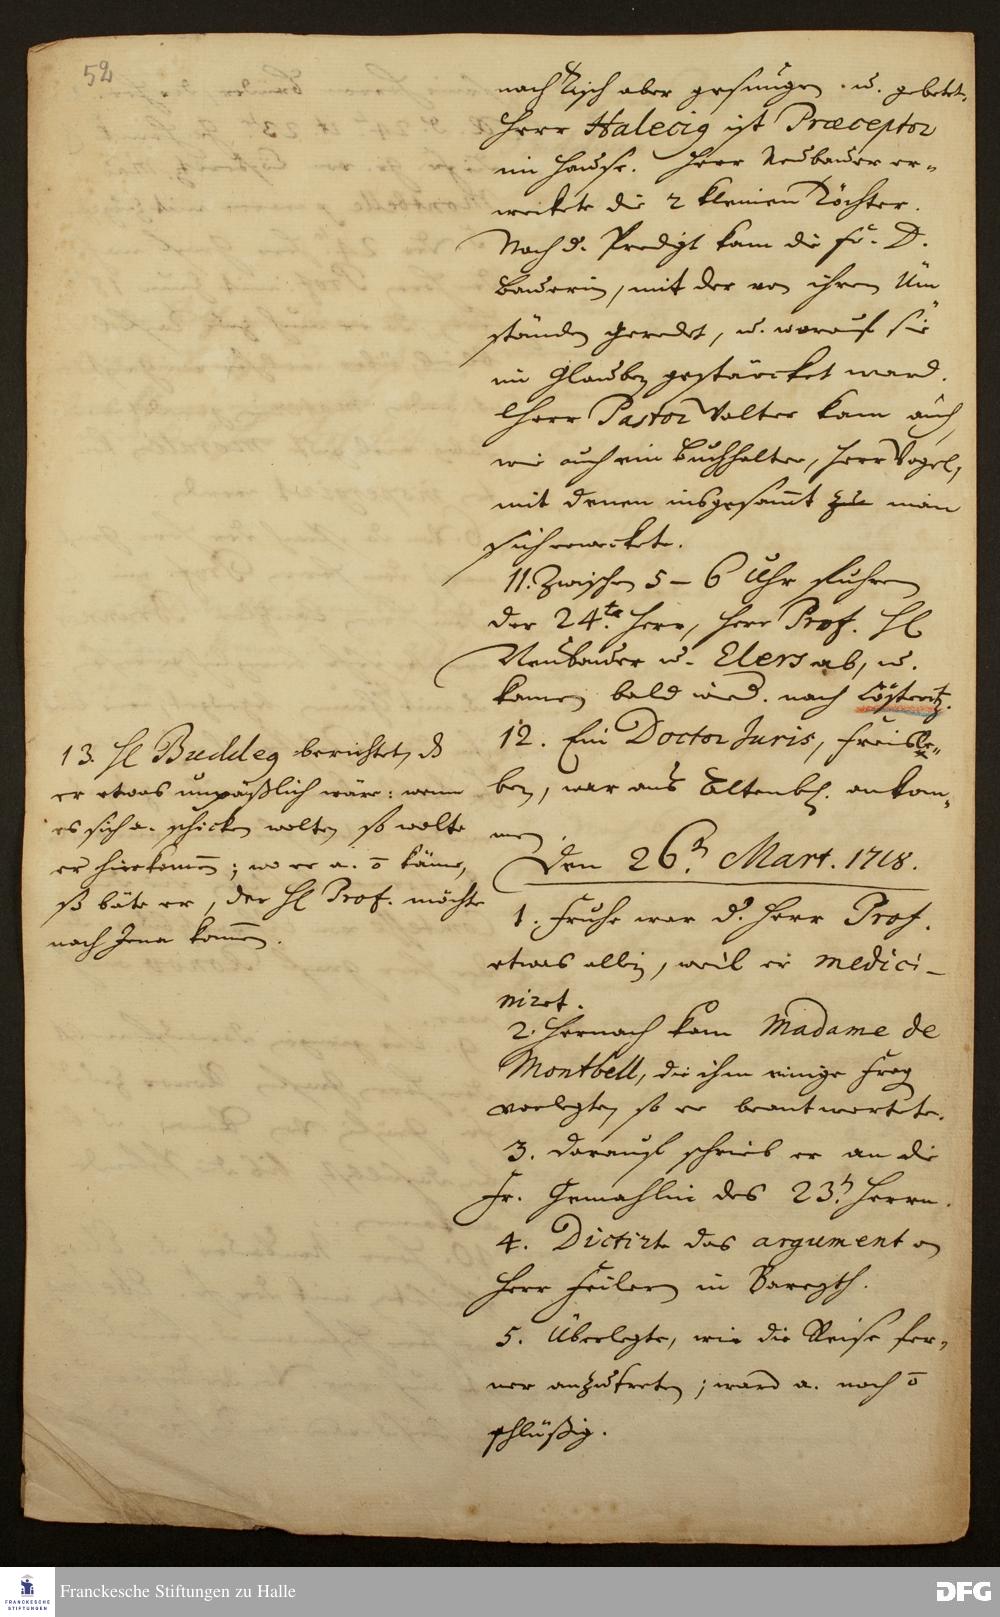 52
nach Tisch aber gesungen u. gebetet.
Herr Halecig ist Præceptor
im Hause. Herr Neubauer er-
weckte die 2 kleinen Töchter.
Nach d. Predigt kam die Fr. D.
Bauerin, mit der von ihren Um
ständen geredet, u. worauf sie
im Glauben gestärcket ward.
Herr Pastor Valter kam auch,
wie auch ein Buchhalter, Herr Vogel,
mit denen insgesammt zu man
sich erweckete.
11. Zwischen 5 - 6 Uhr fuhren
der 24.te Herr, Herr Prof. H
Neubauer u. Elers ab, u.
kamen bald wied. nach Cösteritz.
12. Ein Doctor Juris, Freisle-
ben, war aus Altenb. ankom-
men.
13. H Buddeg berichtet, d
er etwas unpäßlich wäre: wenn
es sich a. schicken wolte, so wolte
er hierkommen; wo er a. ō käme,
so bäte er, der H Prof. möchte
nach Jena kommen.
Den 26. Mart. 1718.
1. Fruhe war d. Herr Prof.
etwas allein, weil er medici-
niret.
2. Hernach kam Madame de
Montbell, die ihm einige Frag
vorlegte, so er beantwortete.
3. Darauf schrieb er an die
Fr. Gemahlin des 23. Herrn.
4. Dictirte das argument an
Herr Feilern in Bareyth.
5. Überlegte, wie die Reise fer-
ner anzutreten; ward a. noch ō
schlüßig.
Franckesche Stiftungen zu Halle
FRANCKESCHE
STIFTUNGEN
DFG